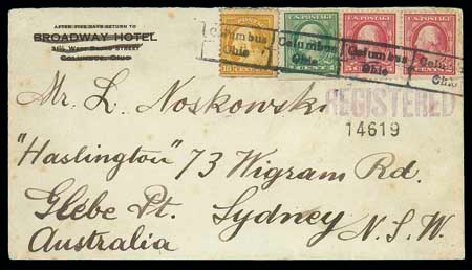 AFTER FIVE DAYS RETURN TO
BROADWAY HOTEL
WEST STREET
COLUMBUS, OHIO
Columbus
Ohio
Columbus
Ohio
Columbus
Ohio
Ohio
REGISTERED
14619
Mr. L. Noskowski
"Haslington" 73 Wigram Rd.
Glebe Pt. Sydney N.S.W.
Australia